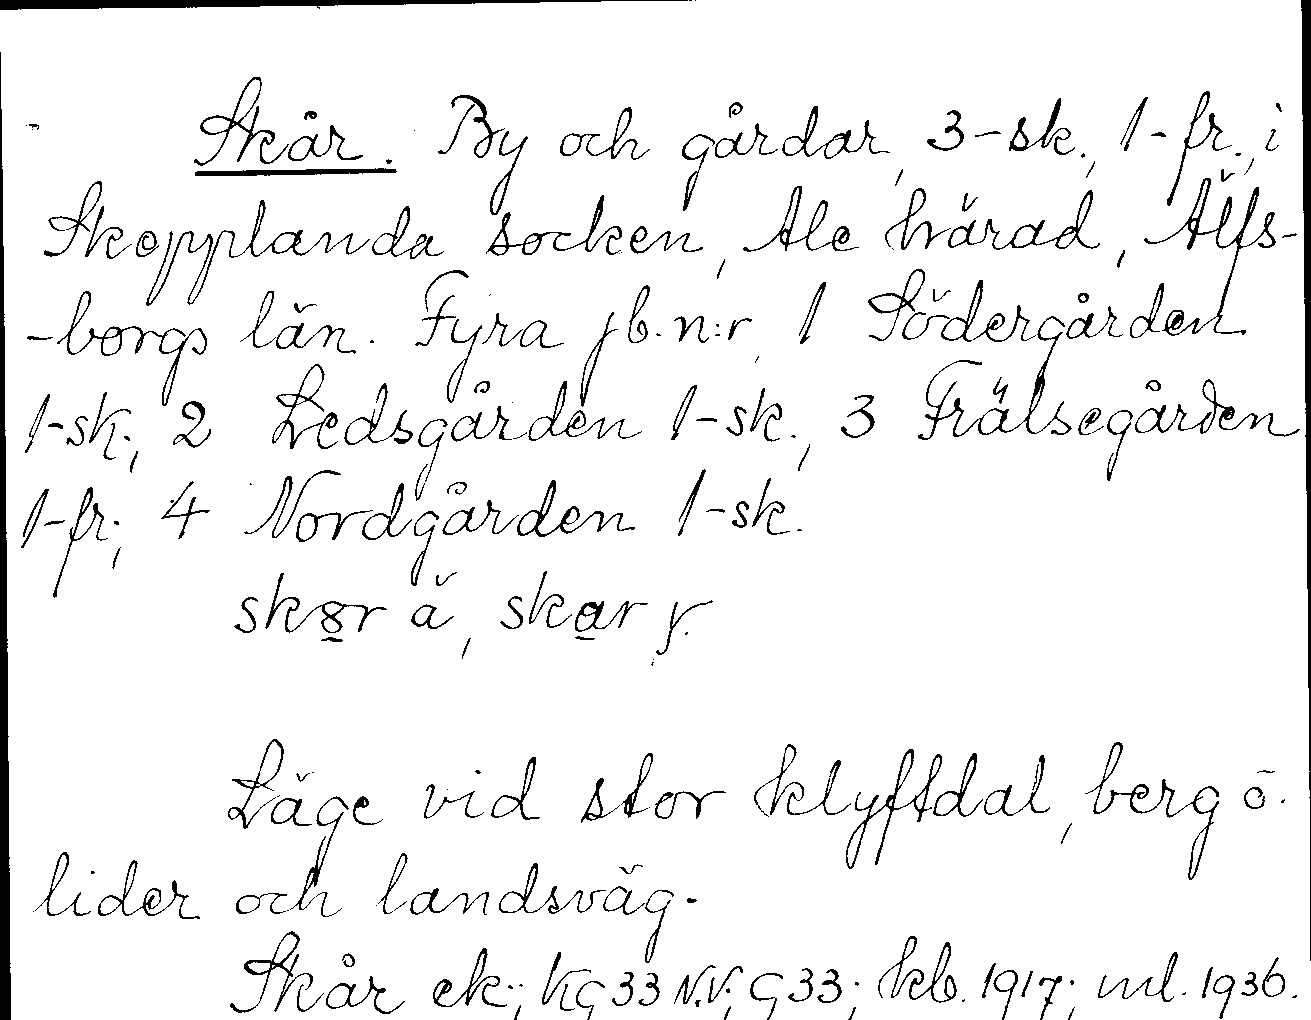 Skår. By och gårdar, 3-sk., 1-fr., i
Skepplanda socken, Ale härad, Älfs-
-borgs län. Fyra jb. n:r, 1 Södergården
1-sk., 2 Ledsgården 1-sk., 3 Frälsegården
1-fr., 4 Nordgården 1-sk.
skor ä, skar y.
Läge vid stor klyftdal, berg ö.
lider och landsväg.
Skår ek.; KG 33 N.V.; G 33; kb. 1917; ml. 1936.